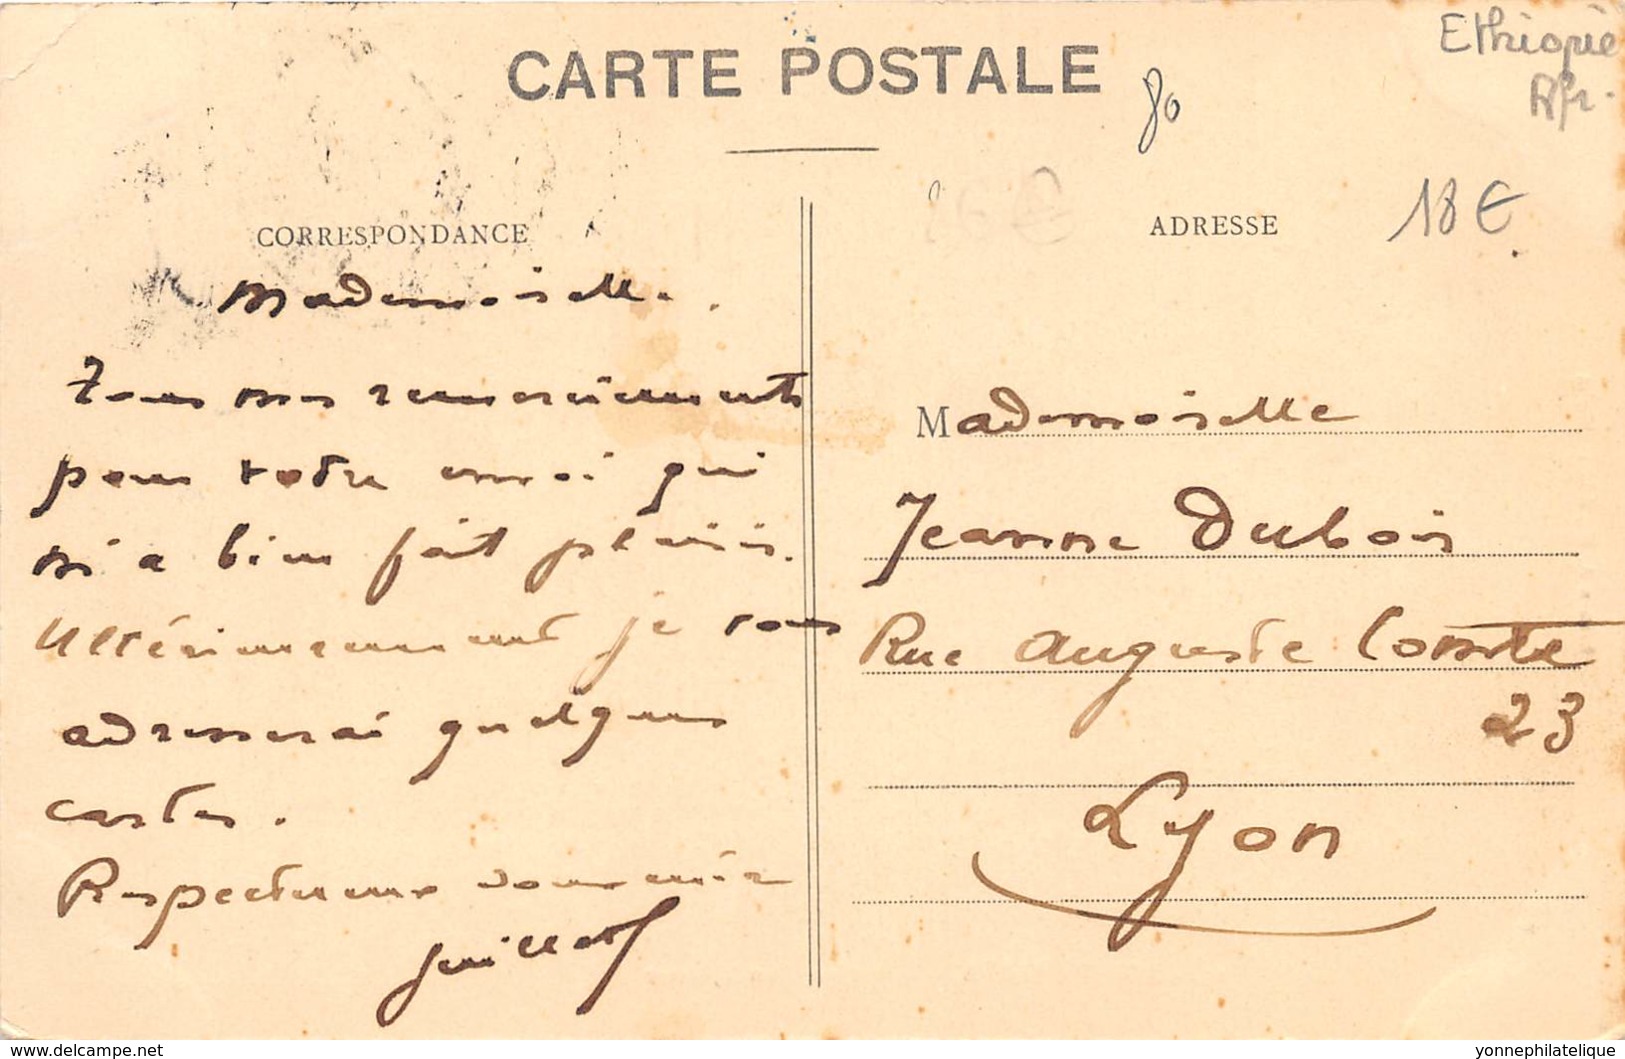 CARTE POSTALE
Ethiopie
Afr.
80
18 €
CORRESPONDANCE
ADRESSE
Mademoiselle.
Tous mes remerciements
pour votre envoi qui
m'a bien fait plaisir.
Ultérieurement je vous
adresserai quelques
cartes.
Respectueux souvenir
Guillot
Mademoiselle
Jeanne Dubois
Rue Auguste Comte
23
Lyon
www.delcampe.net
yonnephilatelique